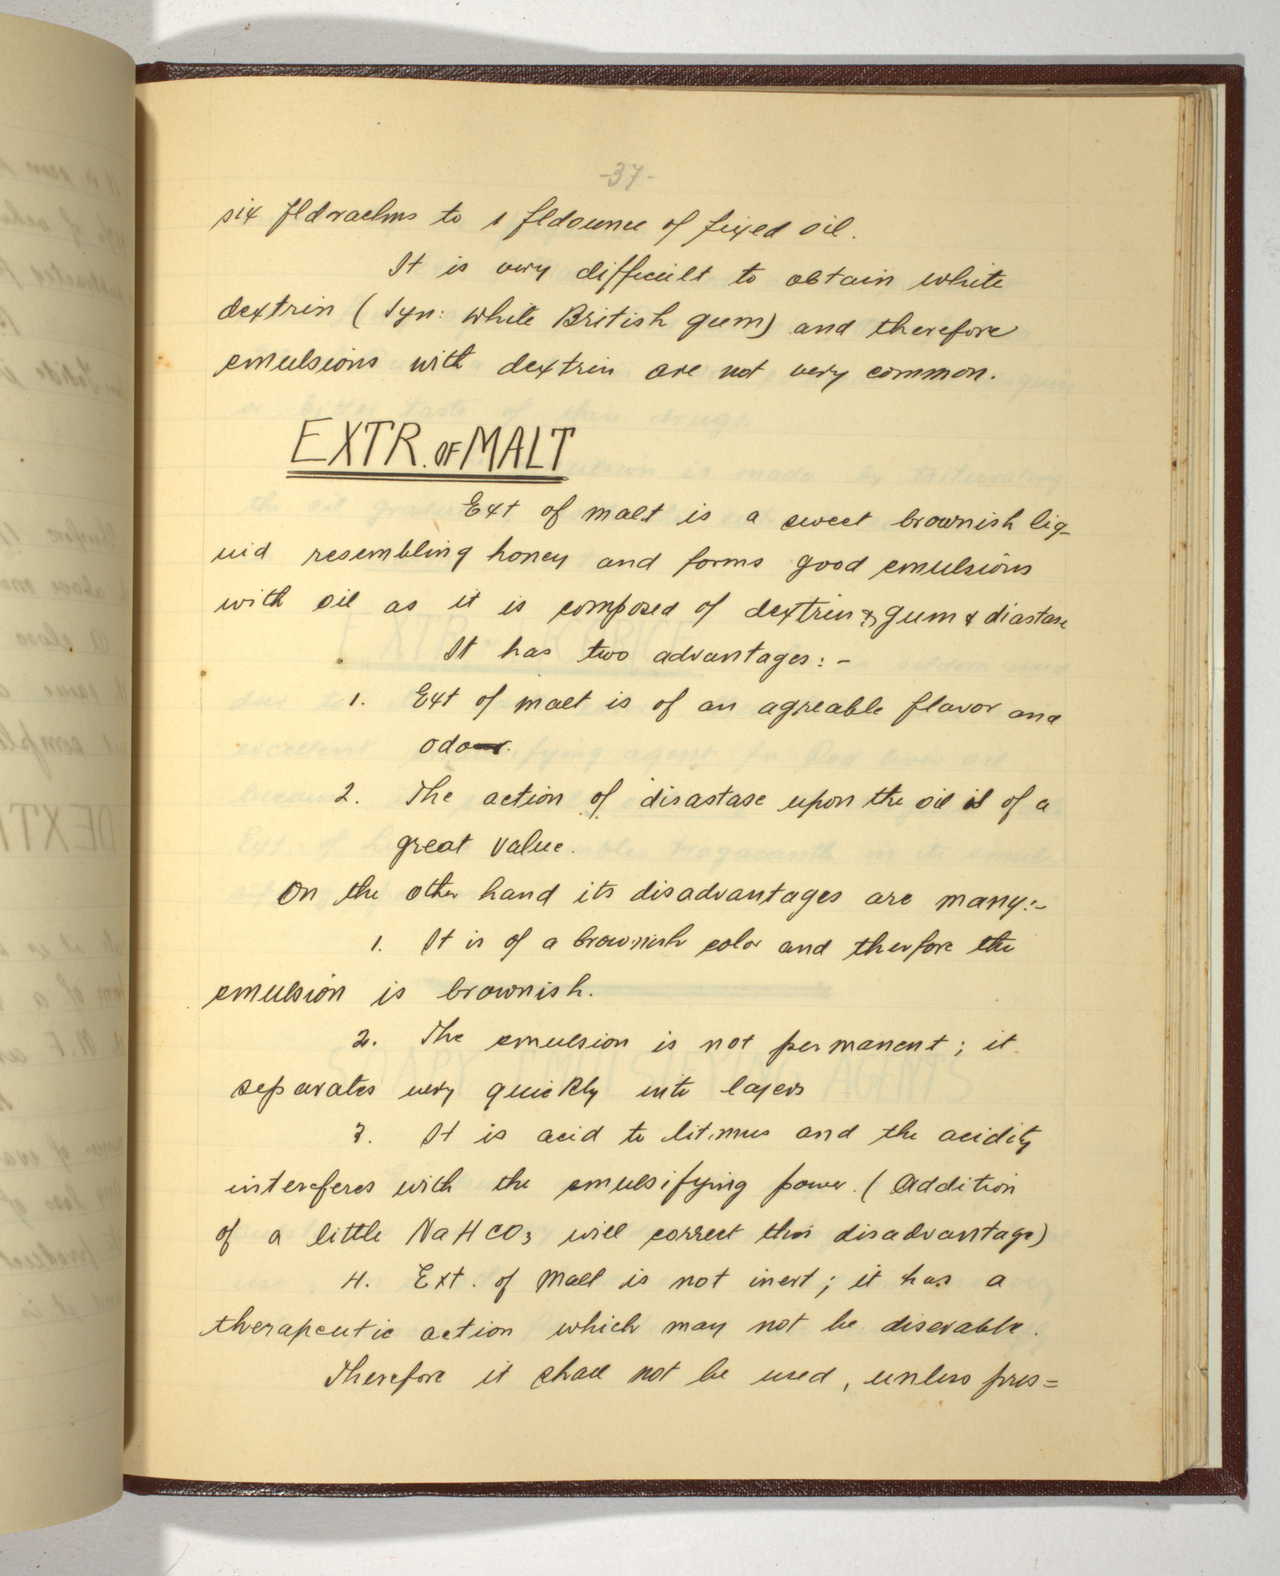 -37-
six fldrachms to 1 fldounce of fixed oil.
It is very difficult to obtain white
dextrin (Syn: white British gum) and therefore
emulsions with dextrin are not very common.
EXTR. OF MALT
Ext of malt is a sweet brownish liq-
uid resembling honey and forms good emulsions
with oil as it is composed of dextrin & gum & diastase
It has two advantages:-
1. Ext of malt is of an agreable flavor and
odor.
2. The action of disastase upon the oil is of a
great value.
On the other hand its disadvantages are many:-
1. It is of a brownish color and therfore the
emulsion is brownish.
2. The emulsion is not permanent; it
separates very quickly into layers
3. It is acid to litmus and the acidity
intereferes with the emulsifying power. (Addition
of a little NaHCO3 will correct this disadvantage)
4. Ext. of Malt is not inert; it has a
therapeutic action which may not be diserable.
Therefore it shall not be used, unless pres=